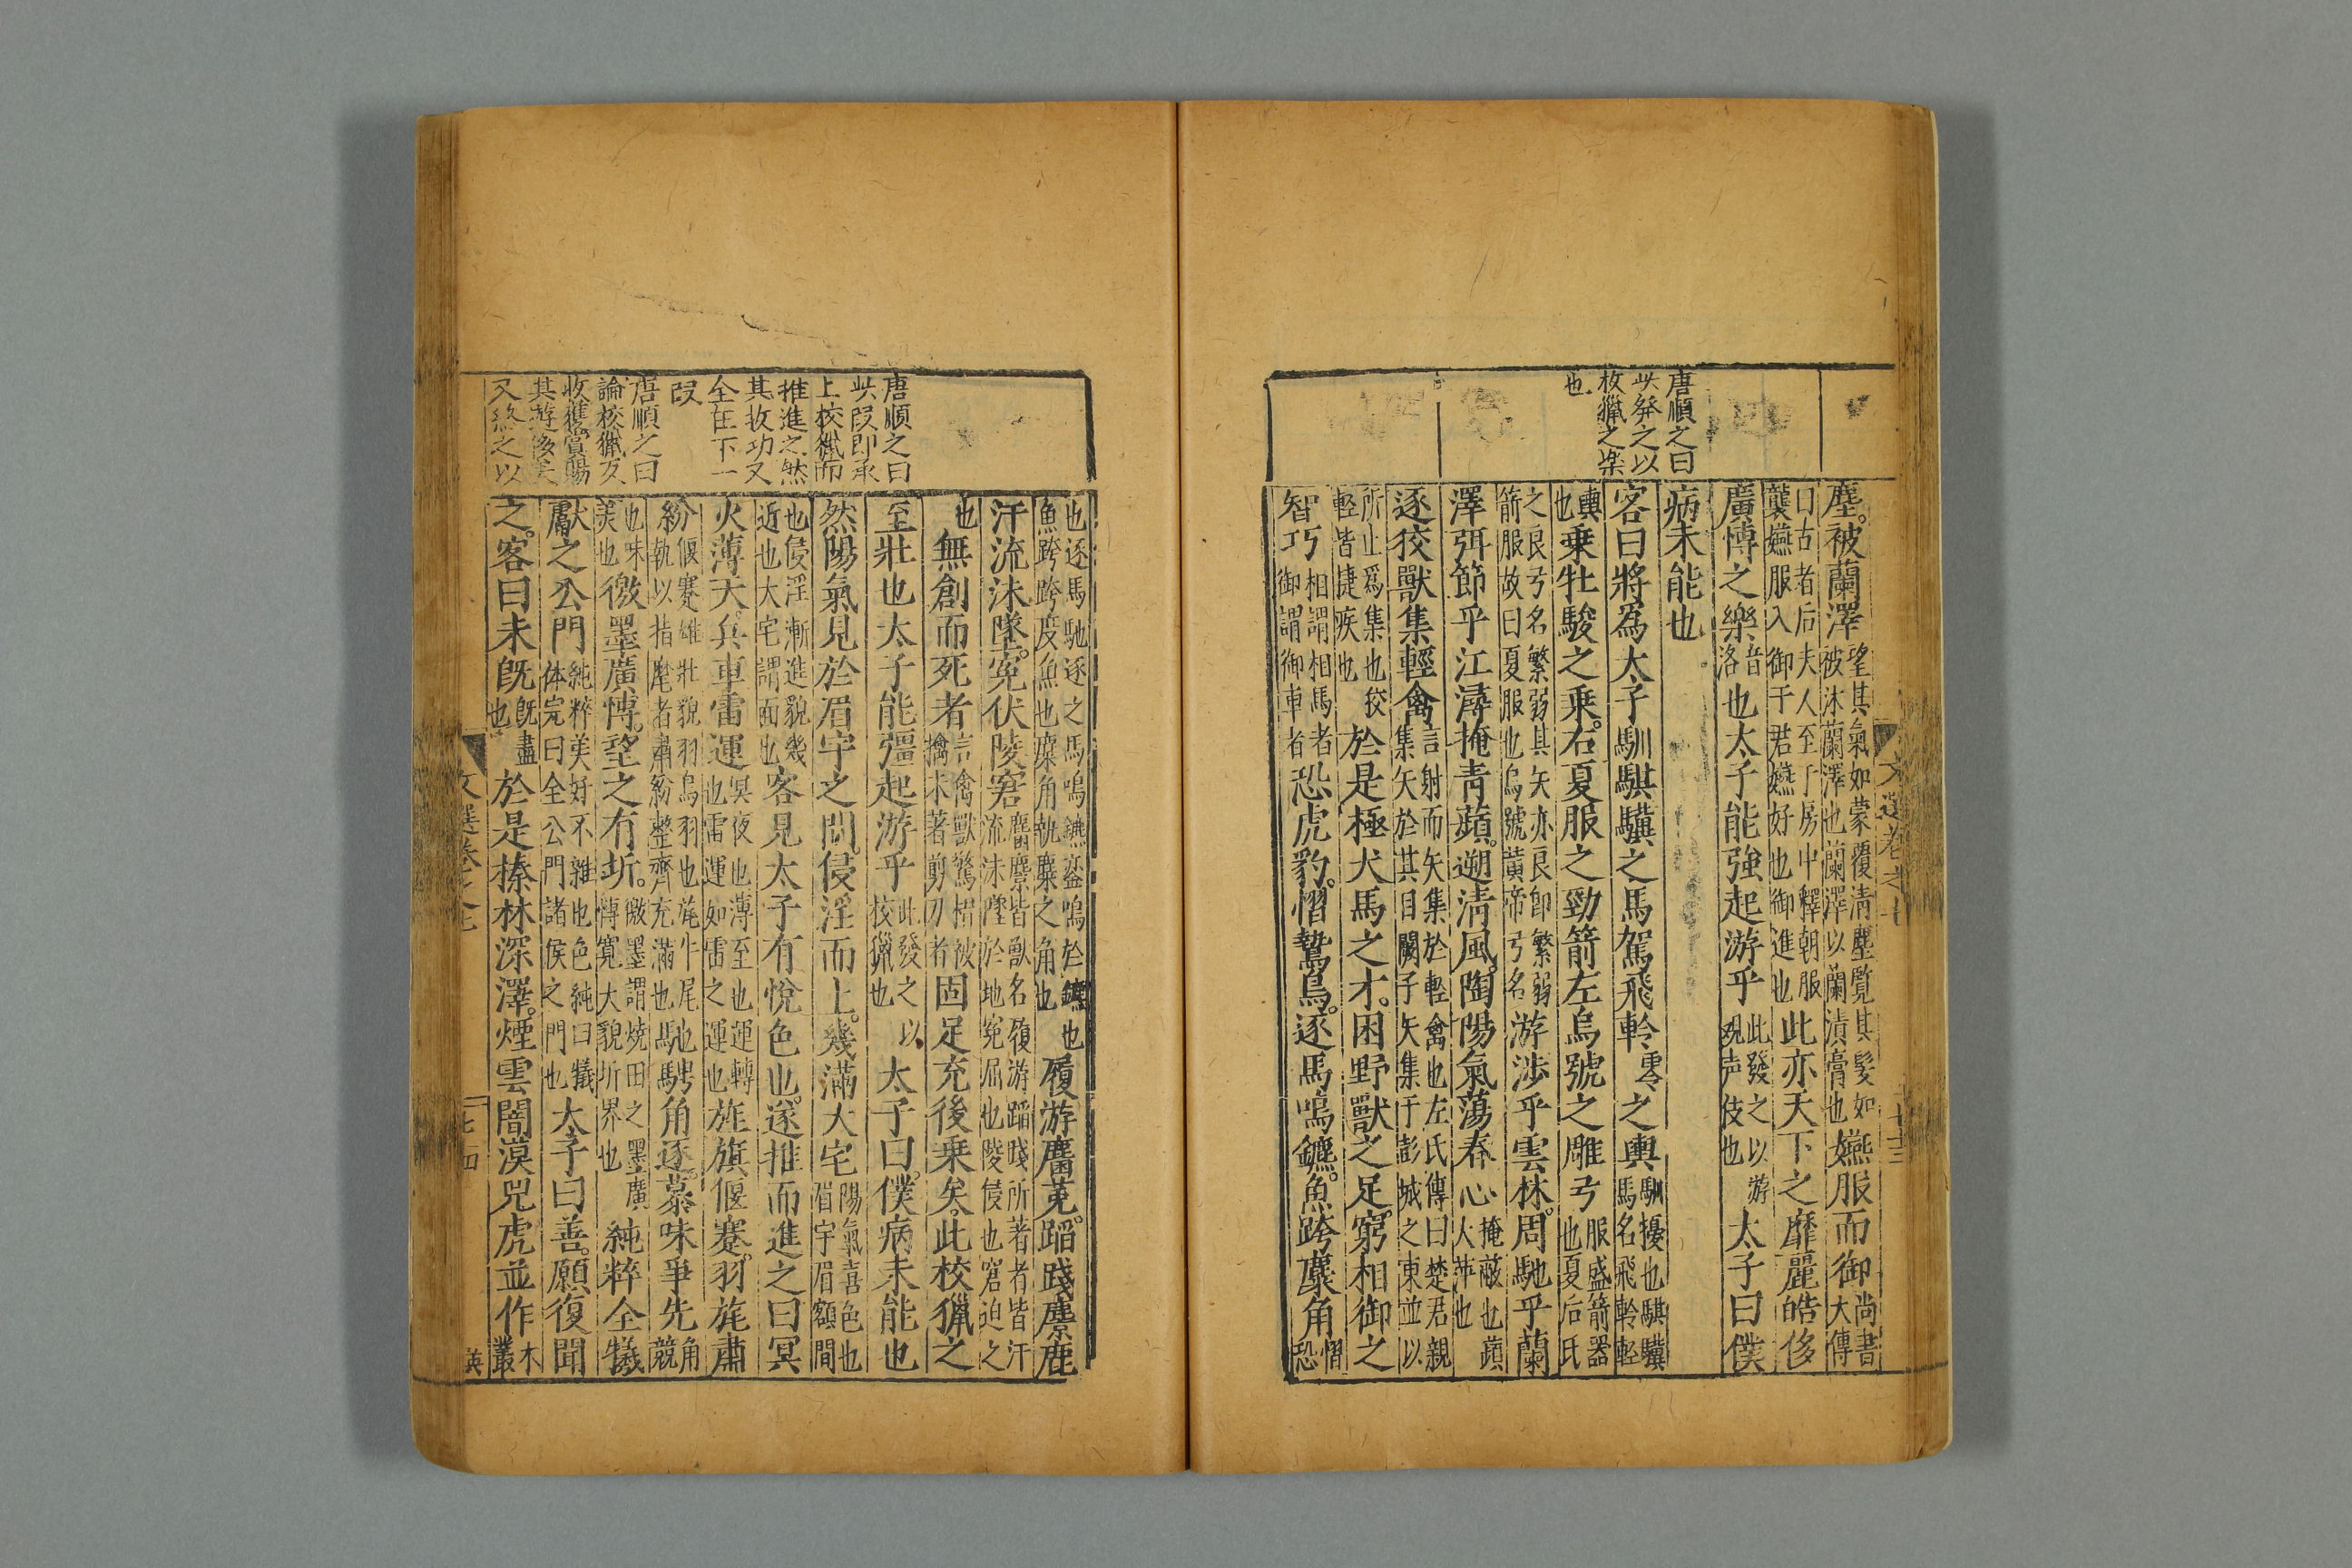 唐順之曰
此發之以
校獵之樂
也
塵。被蘭澤望其氣如蒙覆清塵覽其髮如被沐蘭澤也蘭澤以蘭漬膏也嬿服而御尚書大傳
曰古者后夫人至于房中釋朝服襲嬿服入御于君嬿好也御進也此亦天下之靡麗皓侈
廣博之樂音洛也太子能強起游乎此發之以游觀声伎也太子曰僕
病未能也
客曰將爲太子馴騏驥之馬駕飛軨零之輿馴擾也騏驥馬名飛軨輕
輿也乗牡駿之乗。右夏服之勁箭左烏號之雕弓服盛箭器也夏后氏
之良弓名繁弱其矢亦良卽繁弱箭服故曰夏服也烏號黃帝弓名游涉乎雲林。周馳乎蘭
澤弭節乎江潯掩青蘋。遡清風。陶陽氣蕩春心掩蔽也蘋大萍也
逐狡獸集輕禽言射而矢集於輕禽也左氏傳曰楚君親集矢於其目闕子矢集于彭城之東並以
所止爲集也狡輕皆捷疾也於是極犬馬之才。困野獸之足。窮相御之
智巧相謂相馬者御謂御車者恐虎豹。慴鷙鳥。逐馬鳴鑣。魚跨麋角慴恐
文選卷之七
七十三
唐順之曰
此段即承
上校獵而
推進之然
其收功又
全在下一
段
唐順之曰
論校獵及
收獲賞賜
其遊侈矣
又終之以
也逐馬馳逐之馬鳴鑣鑾鳴於鑣也魚跨跨度魚也麋角執麋之角也履游麕莵。蹈踐麖鹿
汗流沫墜。寃伏陵窘麕麖皆獸名履游蹈踐所著者皆汗流沫墜於地寃屈也陵侵也窘迫之
也無創而死者言禽獸驚慴被擒未著剪刃者固足充後乗矣此校獵之
至壯也太子能彊起游乎此發之以校獵也太子曰。僕病未能也
然陽氣見於眉宇之閒。侵淫而上。幾滿大宅陽氣喜色也眉宇眉額間
也侵淫漸進貌幾近也大宅謂面也客見太子有悅色也。遂推而進之曰冥
火薄天。兵車雷運冥夜也薄至也運轉也雷運如雷之運也旌旗偃蹇。羽旄肅
紛偃蹇雄壯貌羽鳥羽也旄牛尾也執以指麾者肅紛整齊充滿也馳騁角逐。慕味爭先角競
也味美也徼墨廣博。望之有圻。徼墨謂燒田之墨廣博寬大貌圻界也純粹全犧
獻之公門純粹美好不雜也色純曰犧体完曰全公門諸侯之門也太子曰善。願復聞
之。客曰未旣旣盡也於是榛林深澤。煙雲闇漠兕虎並作木叢
文選卷之七
七十四
英